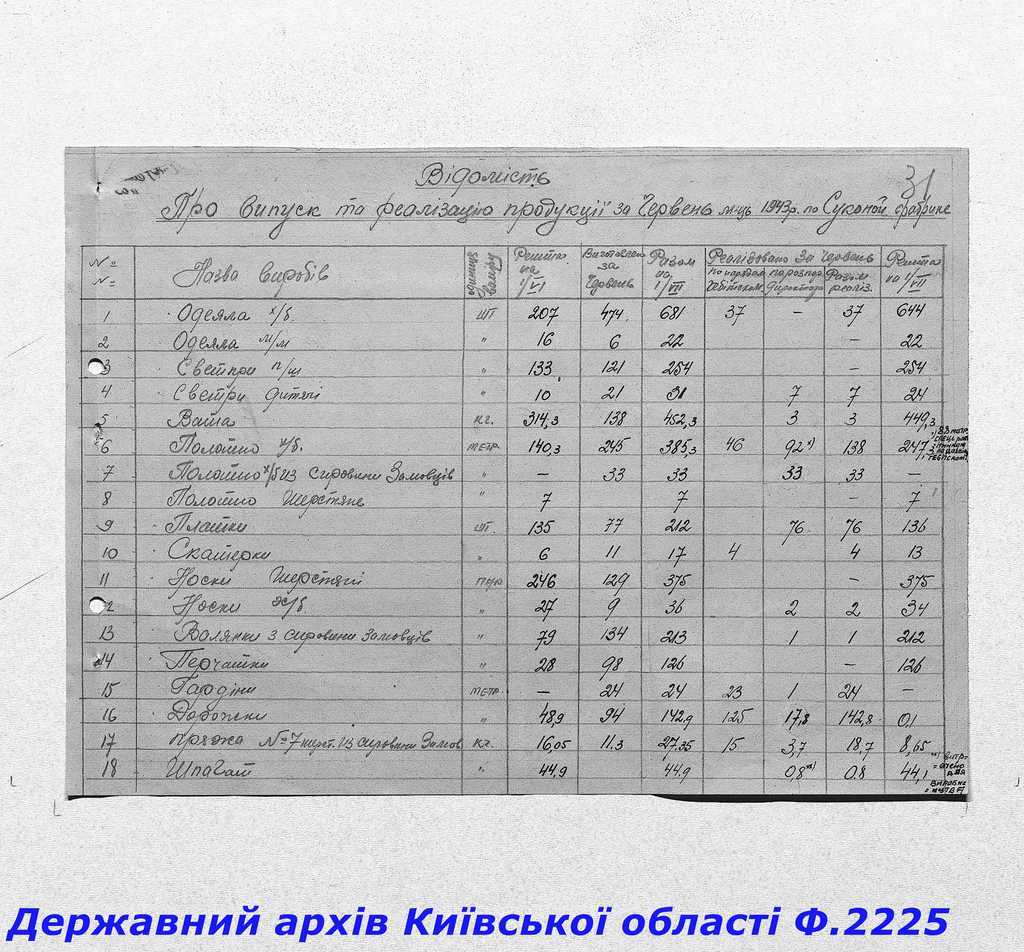 31
Відомість
Про випуск та реалізацію продукції за Червень м-ць 1943р. по Суконой фабрике
№ № Назва виробів Одиниця Решта на 1/VI Виготовлено за Червень Разом на 1/VII Реалізовано за Червень Решта на 1/VII
по нарядам по розпор. директора Разом реаліз.
1 Одеяла х/б шт 207 474 681 37 – 37 644
2 Одеяла м/м " 16 6 22 – 22
3 Светри п/ш " 133 121 254 – 254
4 Светри дитячі " 10 21 31 7 7 24
5 Вата кг. 314,3 138 452,3 3 3 449,3
6 Полотно х/б. метр. 140,3 245 385,3 46 92*) 138 247,3
7 Полотно х/б из сировини Замовців " – 33 33 33 33 –
8 Полотно Шерстяне " 7 7 – 7
9 Платки шт. 135 77 212 76 76 136
10 Скатерки " 6 11 17 4 4 13
11 Носки Шерстяні пар 246 129 375 – 375
12 Носки х/б. " 27 9 36 2 2 34
13 Валянки з сировини Замовців " 79 134 213 1 1 212
14 Перчатки " 28 98 126 – 126
15 Гардіни метр. – 24 24 23 1 24 –
16 Доріжки " 48,9 94 142,9 125 17,8 142,8 0,1
17 Пряжа № 7 шерст. из сировини Замов кг. 16,05 11.3 27.35 15 3,7 18,7 8,65
18 Шпагат " 44,9 44,9 0,8**) 0,8 44,1
Державний архів Київської області Ф.2225